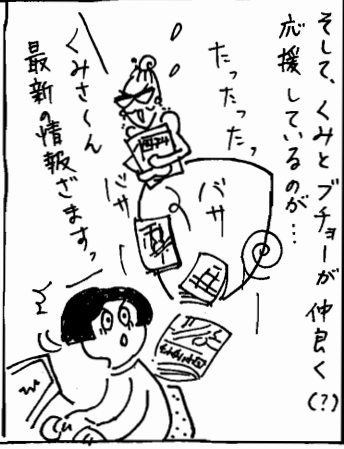 そして、くみとブチョーが仲良く(?)
応援しているのが…
たったったっ
バサ
バサ
くみさ〜ん
最新の情報ざますっ